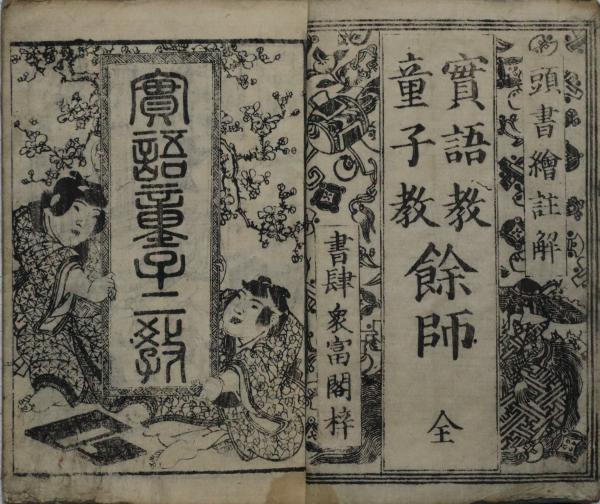 頭書繪註解
實語教
童子教
餘師
全
書肆 衆富閣梓
實語童子二教